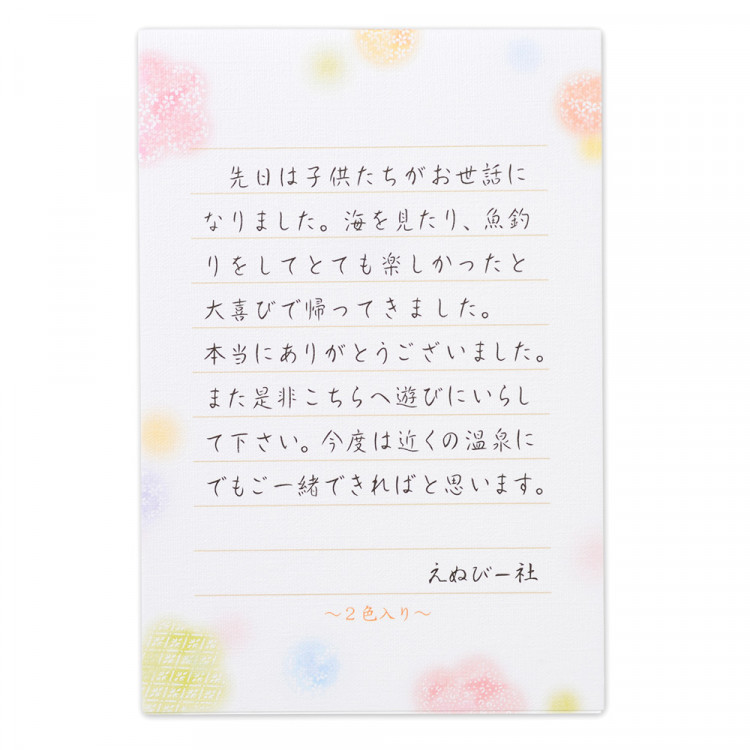 先日は子供たちがお世話に
なりました。海を見たり、魚釣
りをしてとても楽しかったと
大喜びで帰ってきました。
本当にありがとうございました。
また是非こちらへ遊びにいらし
て下さい。今度は近くの温泉に
でもご一緒できればと思います。
えぬびー社
～2色入り～